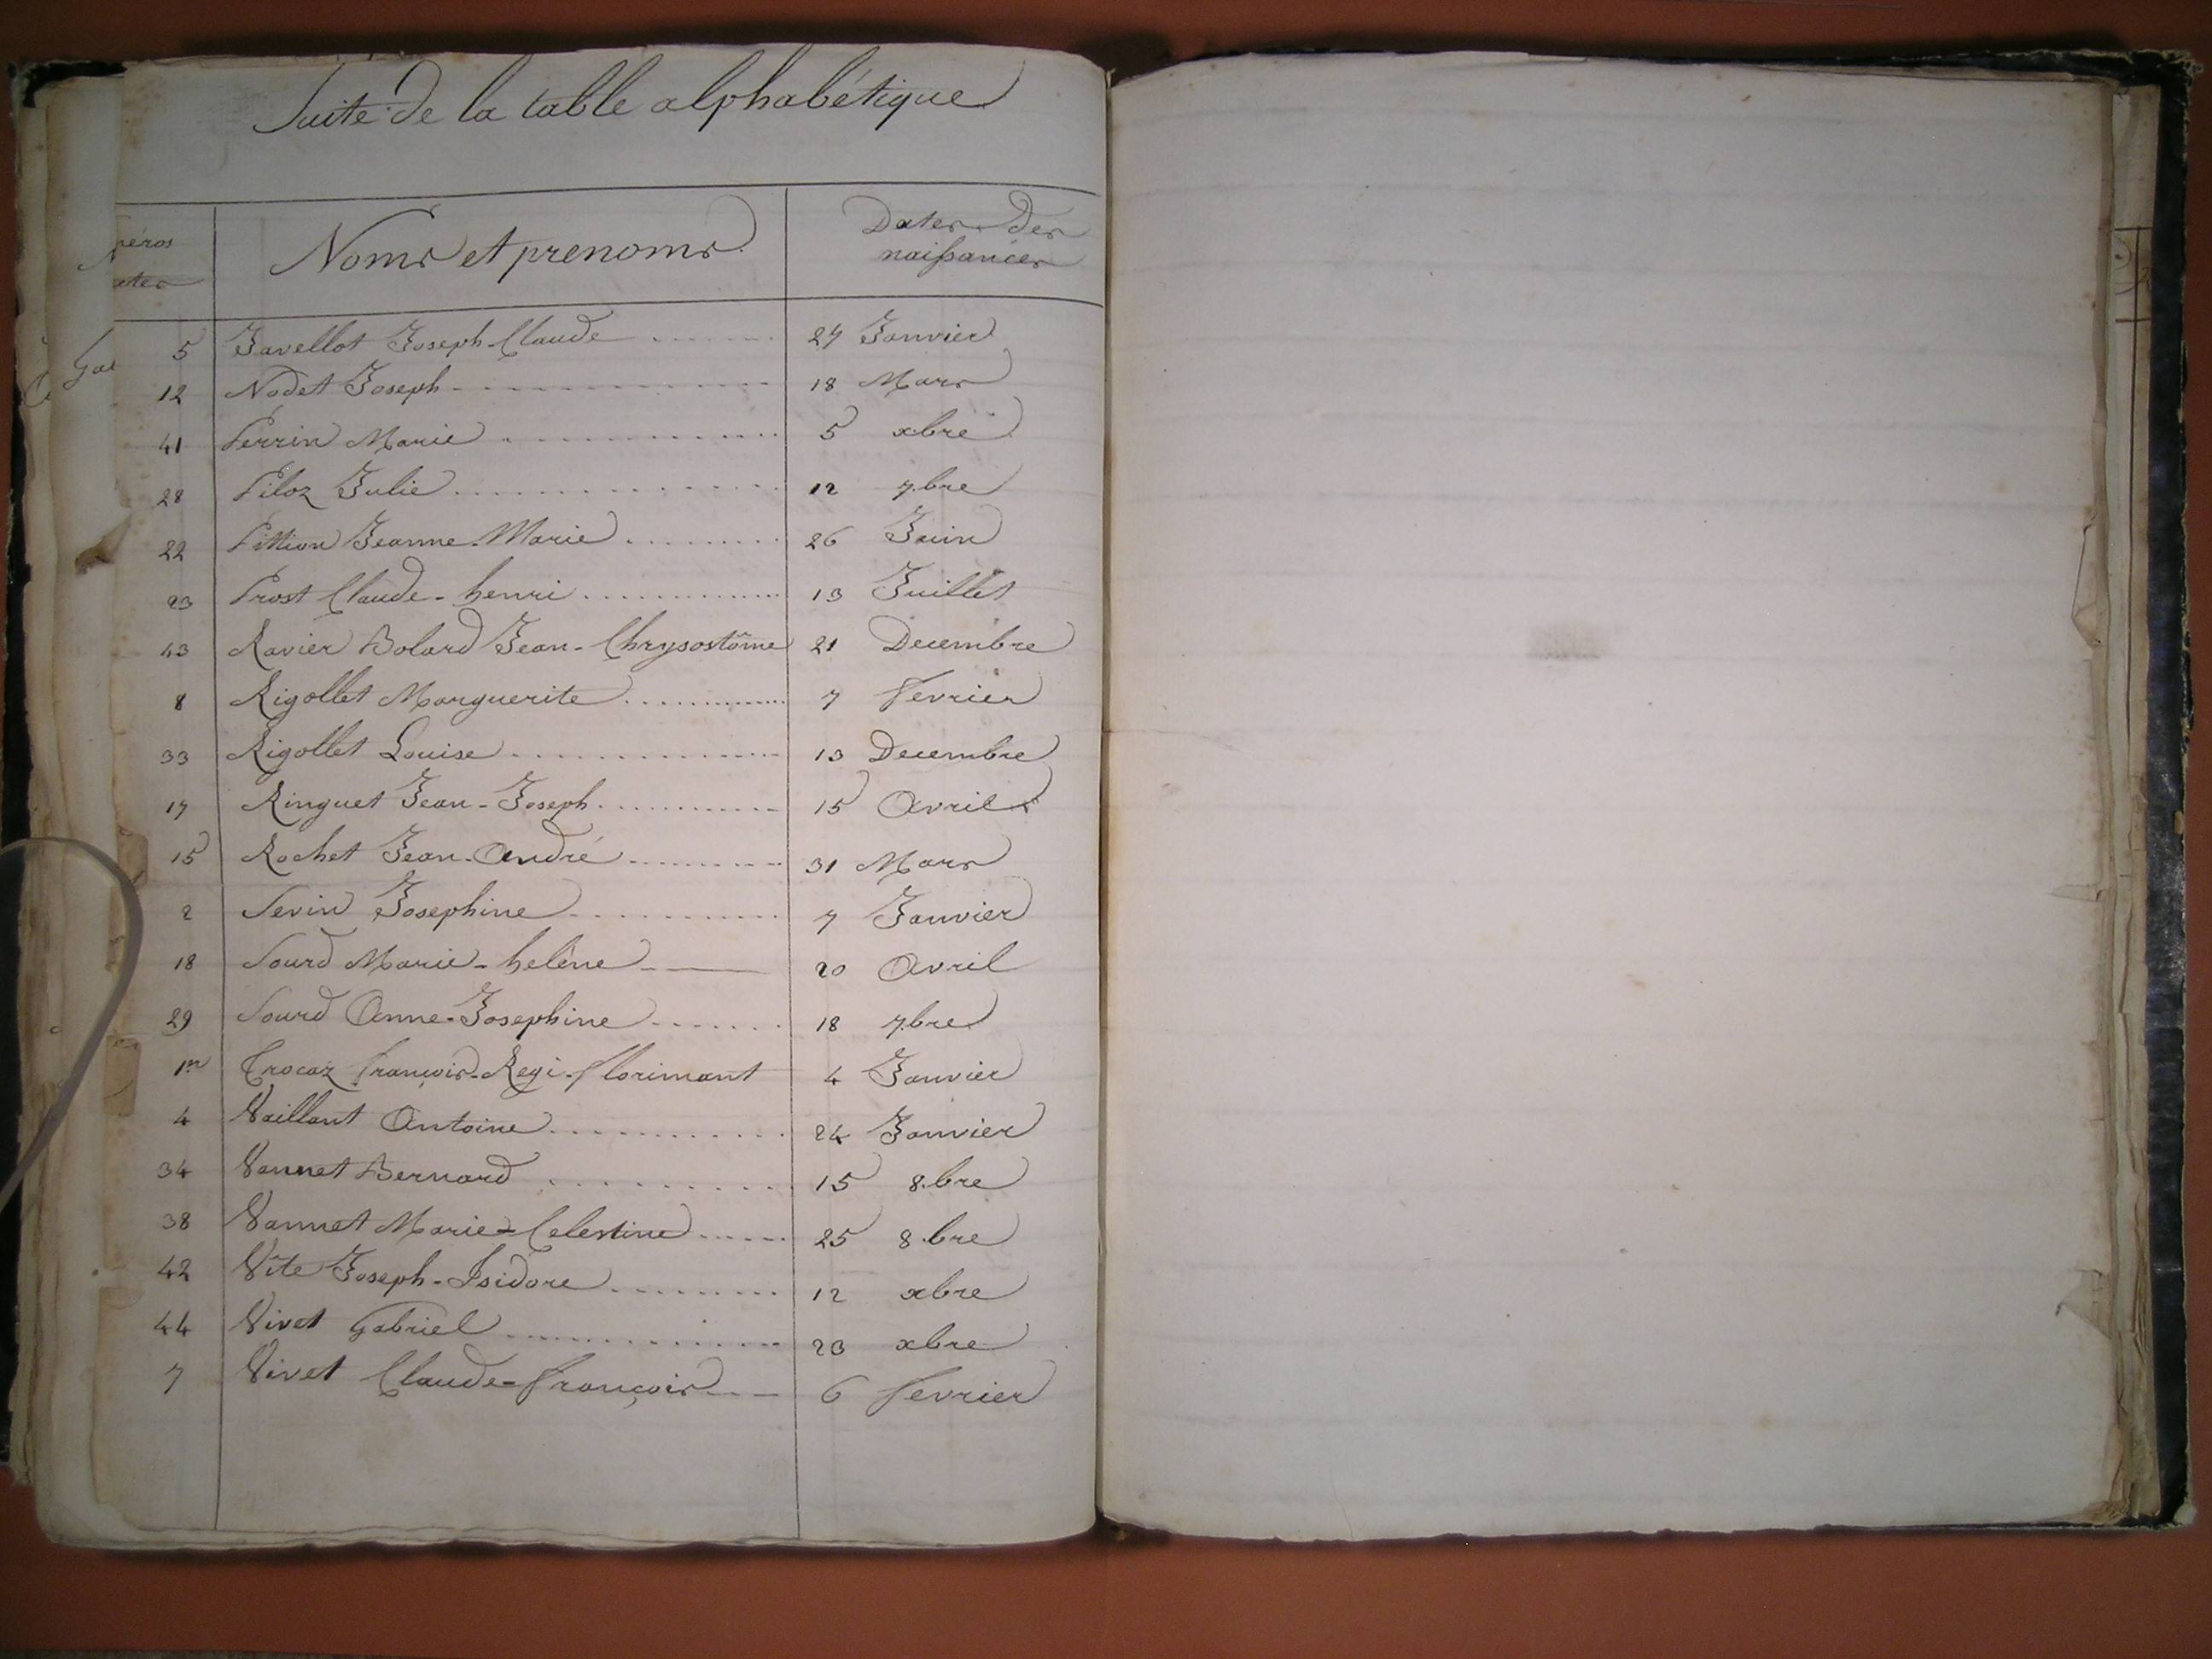 Suite de la table alphabétique
Noms et prenoms
Dates des
naissances
5 Javellot Joseph-Claude 27 Janvier
12 Nodet Joseph 18 Mars
41 Perrin Marie 5 xbre
28 Piloz Julie 12 7bre
22 Pittion Jeanne-Marie 26 Juin
23 Prost Claude-henri 13 Juillet
43 Ravier Bolard Jean-Chrysostôme 21 Decembre
8 Rigollet Marguerite 7 fevrier
33 Rigollet Louise 13 Decembre
17 Ringuet Jean-Joseph 15 Avril
15 Rochet Jean-André 31 Mars
2 Sevin Josephine 7 Janvier
18 Sourd Marie-helène 20 Avril
29 Sourd Anne-Josephine 18 7bre
1er Trocaz françois-Regi-florimant 4 Janvier
4 Vaillant Antoine 24 Janvier
34 Vannet Bernard 15 8bre
38 Vannet Marie-Celestine 25 8bre
42 Vite Joseph-Isidore 12 xbre
44 Vivet Gabriel 23 xbre
7 Vivet Claude-françois 6 fevrier